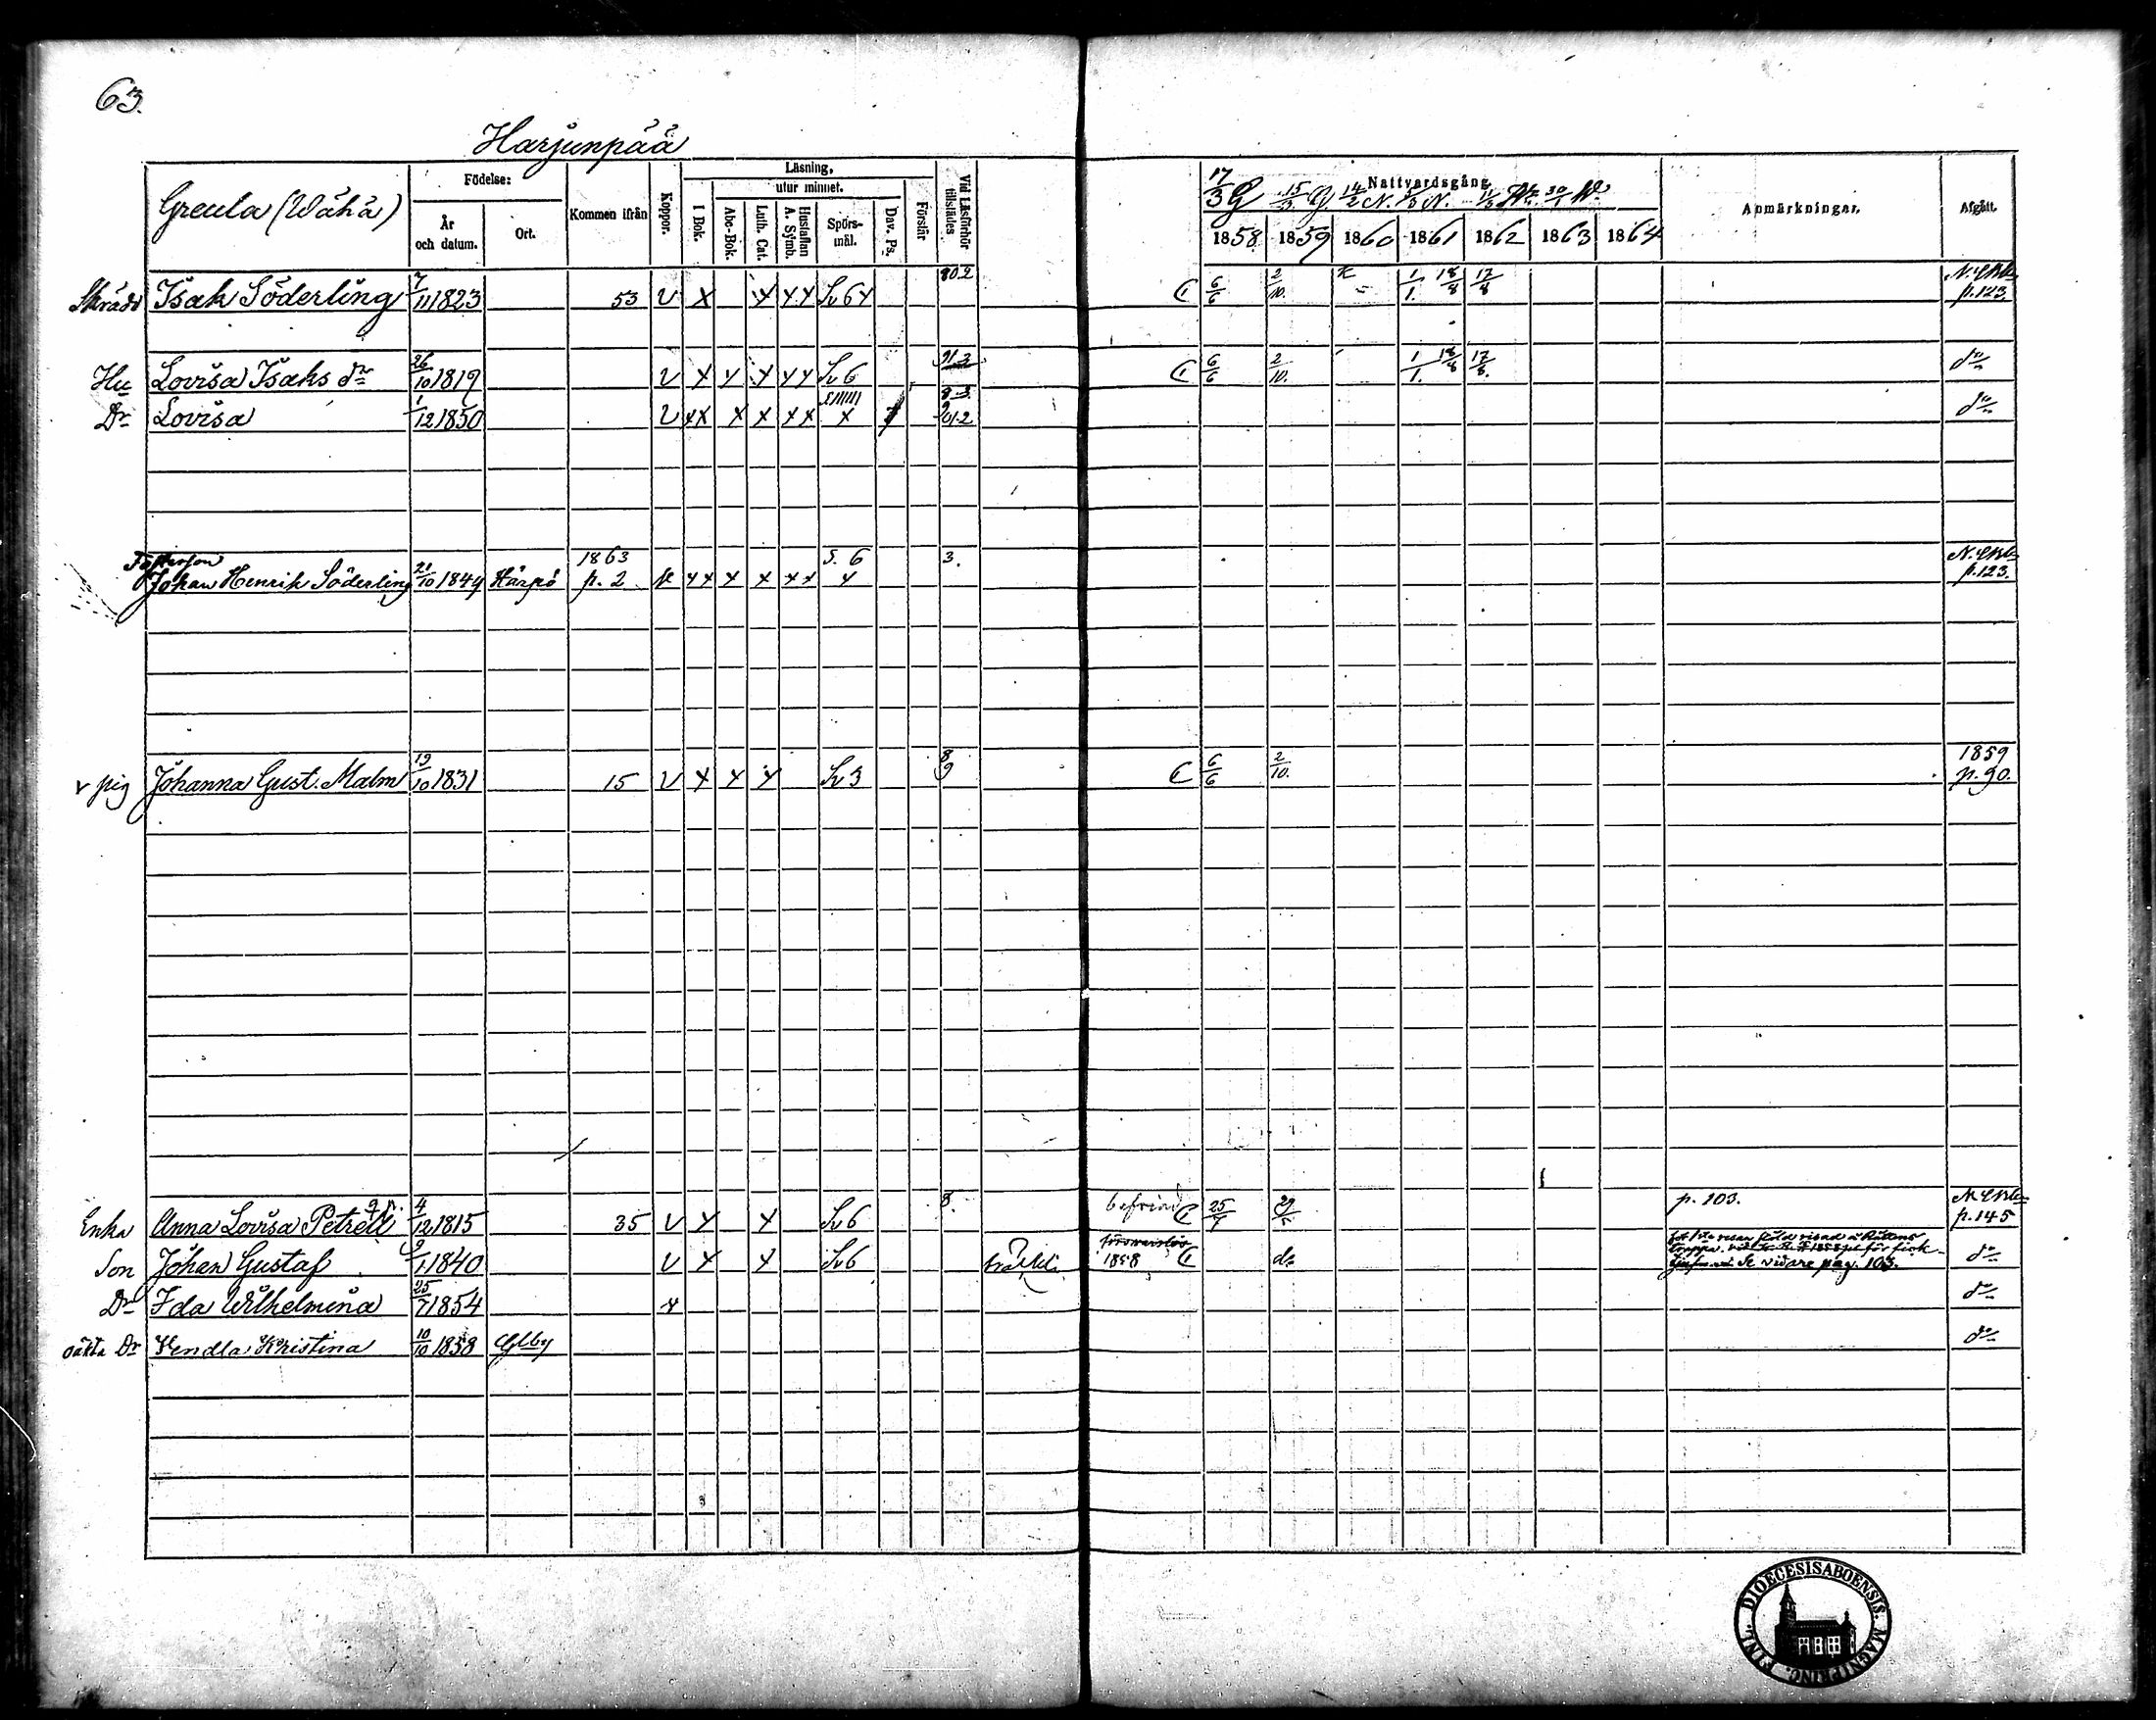 63.
Harjunpää
Greula (Wähä)
Födelse:
År och datum.
Ort.
Kommen ifrån
Koppor.
Läsning,
utur minnet.
I Bok.
Abc-Bok.
Luth. Cat.
Hustaflan A. Symb.
Spörs-mål.
Dav. Ps.
Förstår
Vid Läsförhör tillstädes
Nattvardsgång
17/3 G 15/3 G. 14/2 N. 1/3 N. 30/1
1858. 1859 1860 1861 1862 1863 1864
Anmärkningar.
Afgått.
Isak Söderling 7/11 1823 53 v x x x x Sv 6 x 6/6 2/10. 1/1. 18/8 17/8 p. 123.
Hu Lovisa Isaks dr 26/10 1819 v x x x x x Sv 6 6/6 2/10. 1/1. 18/8 17/8. do
Dr Lovisa 1/12 1850 v x x x x x x x do
Fosterson
Johan Henrik Söderling 21/10 1849 1863 p. 2 x x x x x x S. 6 x 3. p. 123.
pig Johanna Gust. Malm 19/10 1831 15 v x x x Sv 3 8 9 6/6 2/10. 1859 p. 90.
Enka Anna Lovisa Petrell 4/12 1815 35 v x x Sv 6 8. 25/7 29/5 p. 103. p. 145
Son Johan Gustaf 9/1 1840 v x x Sv 6 1858 do Se vidare pag. 103. do
Dr Ida Wilhelmina 25/7 1854 x do
oäkta Dr Hendla Kristina 10/10 1858 do
FINL. DIOECESIS ABOENSIS. MAGNI PRINC.